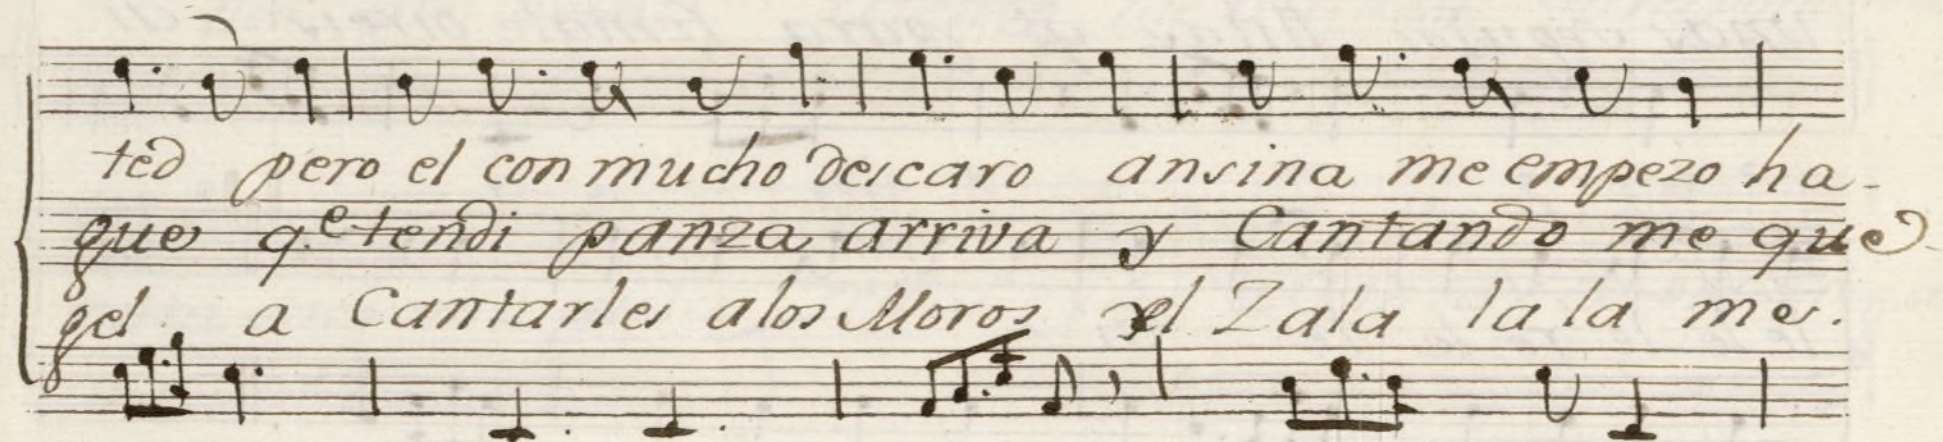 ted pero el con mucho descaro ansina me empezo ha-
que q.e tendi panza arriva y Cantando me que-
gel a Cantarles alos Moros el Zala la la me.